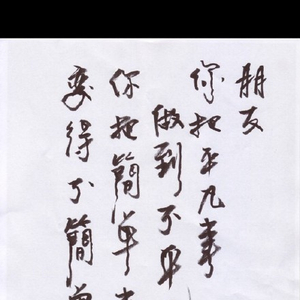 朋友
你把平凡事
做到不平
你把簡單
变得不簡單